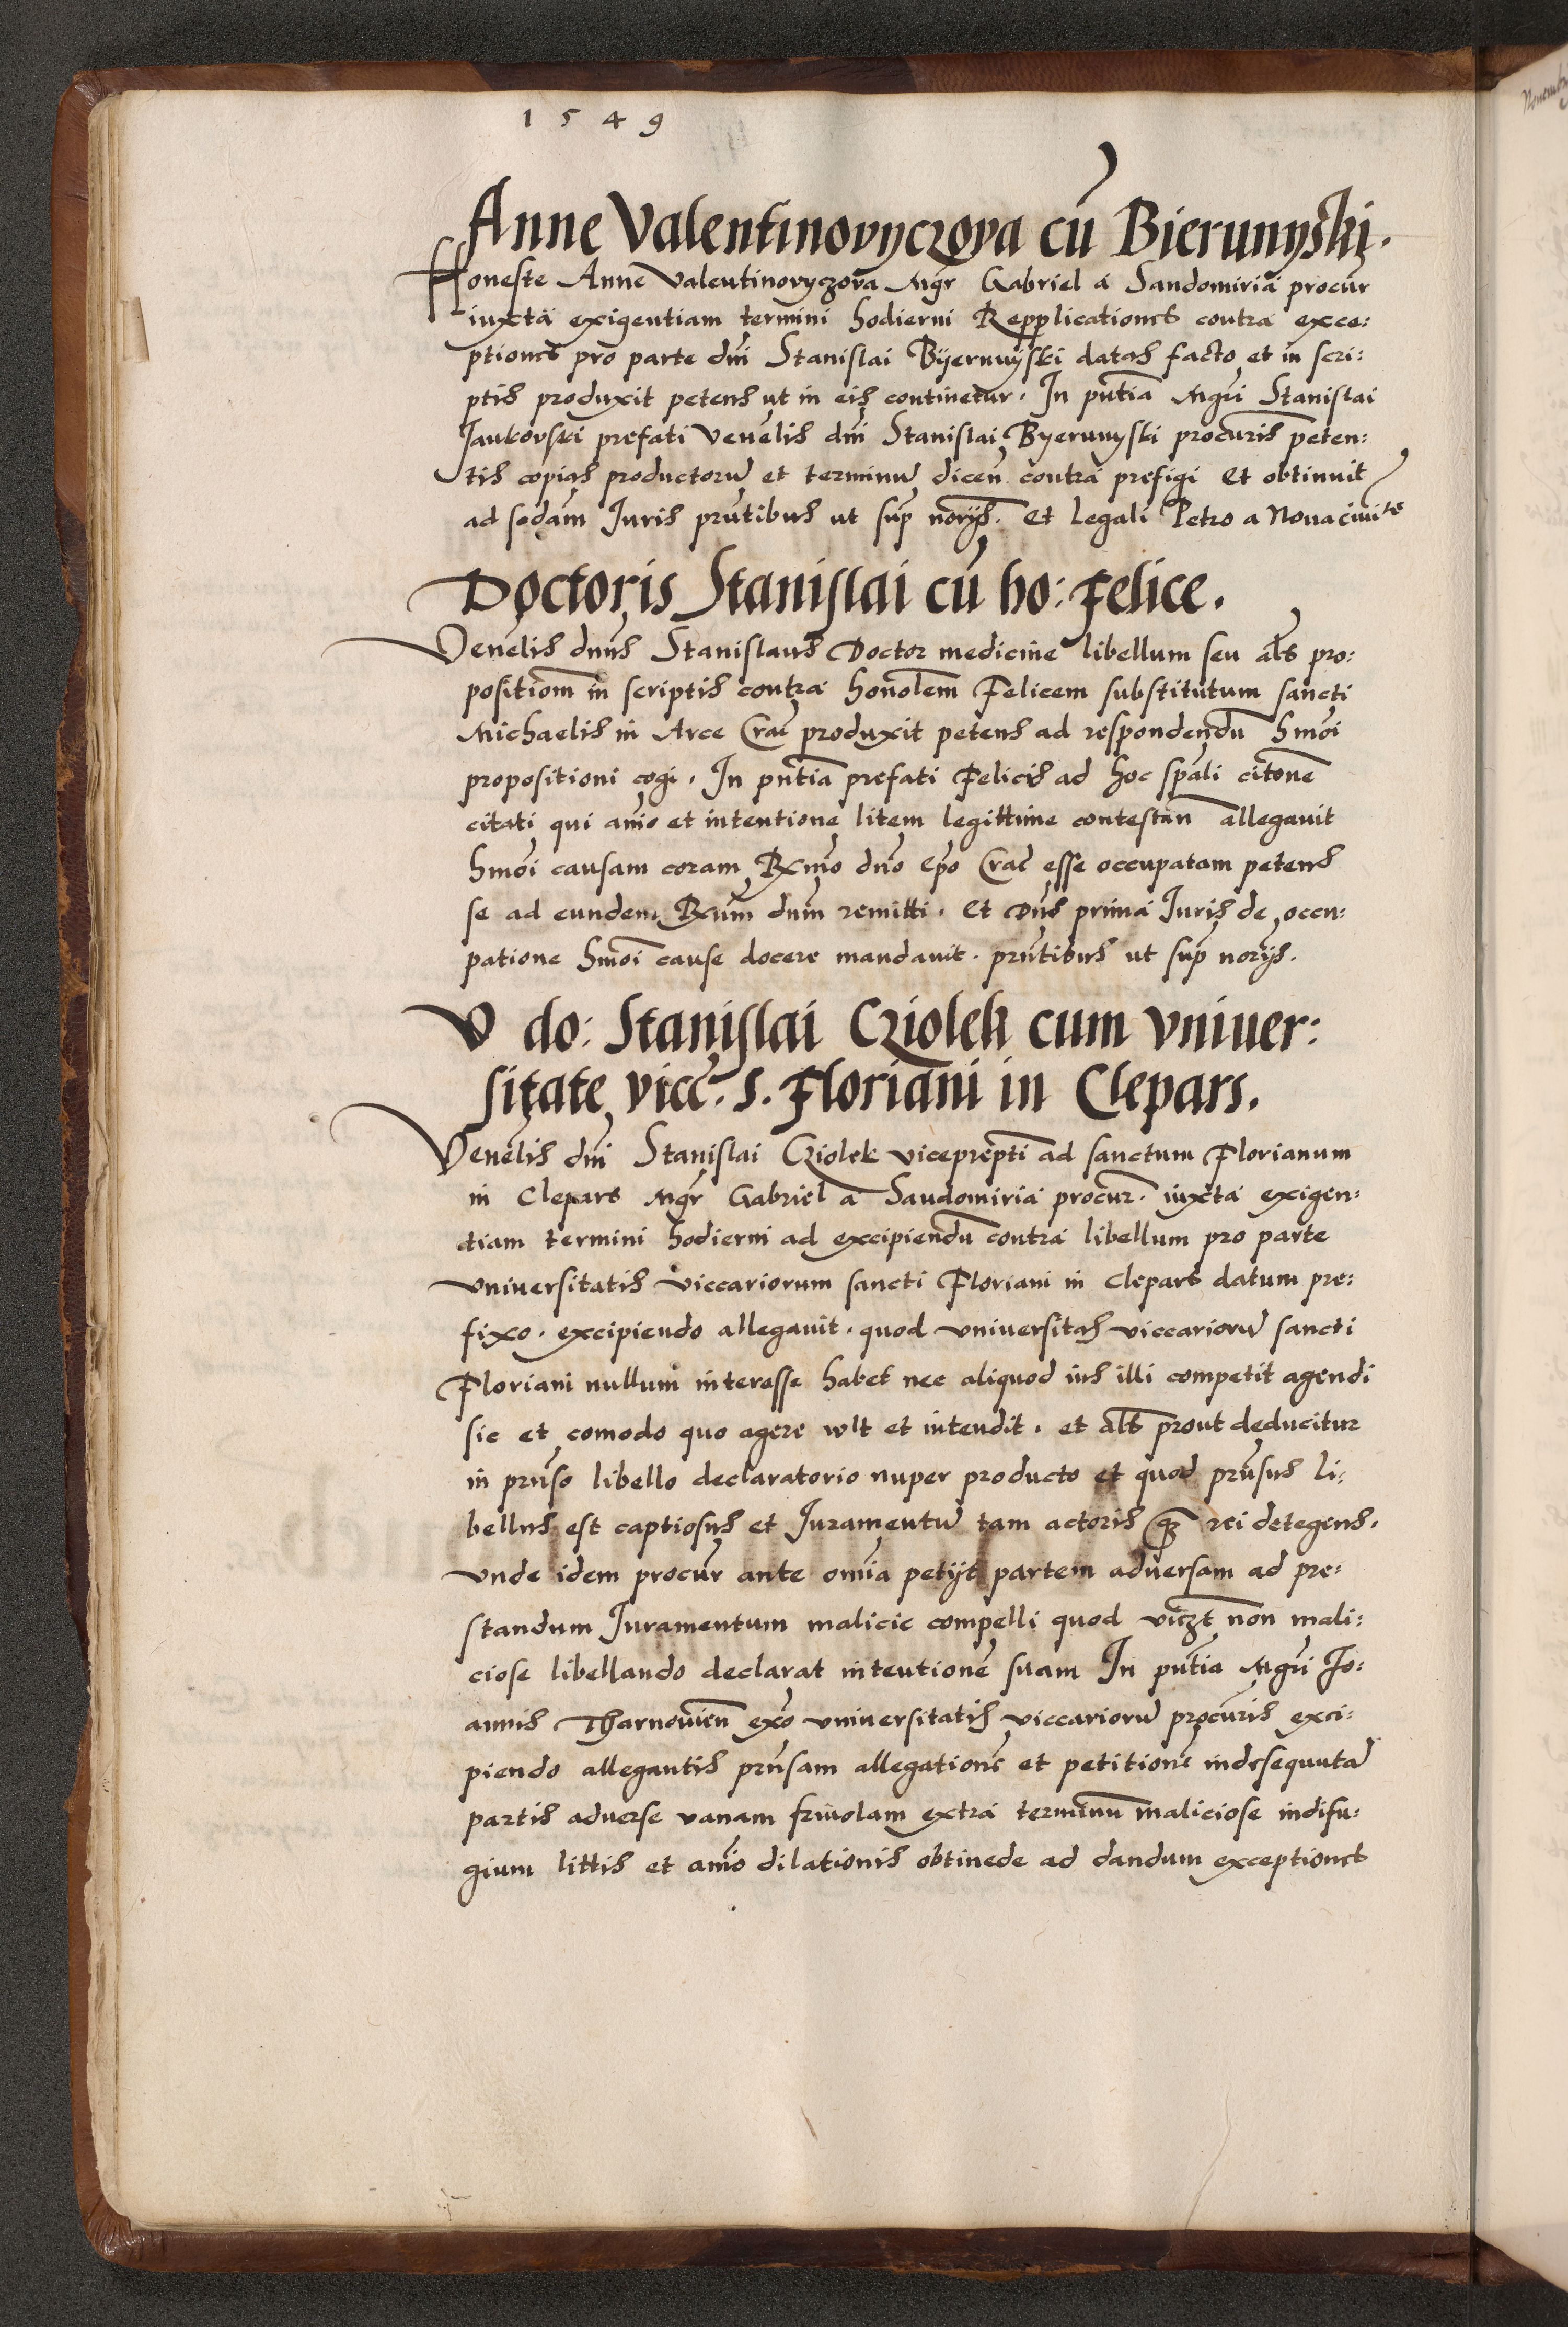 1549
Anne Valentinovyczova cū Bierunyski.
Honeste Anne Valentinovyczova Mgr̄ Gabriel a Sandomiria procur̄
iuxta exigentiam termini hodierni Repplicationes contra exce:
ptiones pro parte dn̄i Stanislai Byerunyski datas facto et in scri:
ptis produxit petens ut in eis continetur. In pn̄tia Mgr̄i Stanislai
Jankovski prefati Venēlis dn̄i Stanislai Byerunyski procur̄is peten:
tis copias productorū et terminū dicen̄ contra prefigi Et obtinuit
ad sedam Juris pn̄tibus ut sup̄ nor̄ijs. Et Legali Petro a Nova civite
Doctoris Stanislai cū ho: Felice.
Venēlis dn̄us Stanislaus Doctor medicine libellum seu als̄ pro:
positiōem in scriptis contra honolēm Felicem substitutum sancti
Michaelis in Arce Crac̄ produxit petens ad respondendū hmōi
propositioni cogi. In pn̄tia prefati Felicis ad hoc spāli citōne
citati qui aīo et intentione litem legittime contestan̄ allegavit
hmōi causam coram Rx̄mo dn̄o Ep̄o Crac̄ esse occupatam petens
se ad eundem Rx̄um dn̄m remitti. Et Dn̄s prima Juris de occu:
patione hmōi cause docere mandavit. pn̄tibus ut sup̄ nor̄ijs.
V do: Stanislai Cziolek cum vniver:
sitate vicc̄. S. Floriani in Clepars.
Venēlis dn̄i Stanislai Cziolek viceprep̄ti ad sanctum Florianum
in Clepars Mgr̄ Gabriel a Sandomiria procur̄. iuxta exigen:
tiam termini hodierni ad excipiendū contra libellum pro parte
vniversitatis viccariorum sancti Floriani in Clepars datum pre:
fixo. excipiendo allegavit. quod vniversitas viccariorū sancti
Floriani nullum interesse habet nec aliquod ius illi competit agendi
sic et comodo quo agere wlt et intendit. et als̄ prout deducitur
in prn̄so libello declaratorio nuper producto et quod prn̄sus li:
bellus est captiosus et Juramentū tam actoris q̄ rei detegens.
vnde idem procur̄ ante om̄ia petijt partem adversam ad pre:
standum Juramentum malicie compelli quod viczt̄ non mali:
ciose libellando declarat intentionē suam In pn̄tia Mgr̄i Jo:
annis Tharnovien̄ ex̄o vniversitatis viccariorū procur̄is exci:
piendo allegantis prn̄sam allegationē et petitionē indesequuta
partis adverse vanam frivolam extra terminū maliciose indifu:
gium littis et aīo dilationis obtinede ad dandum exceptiones